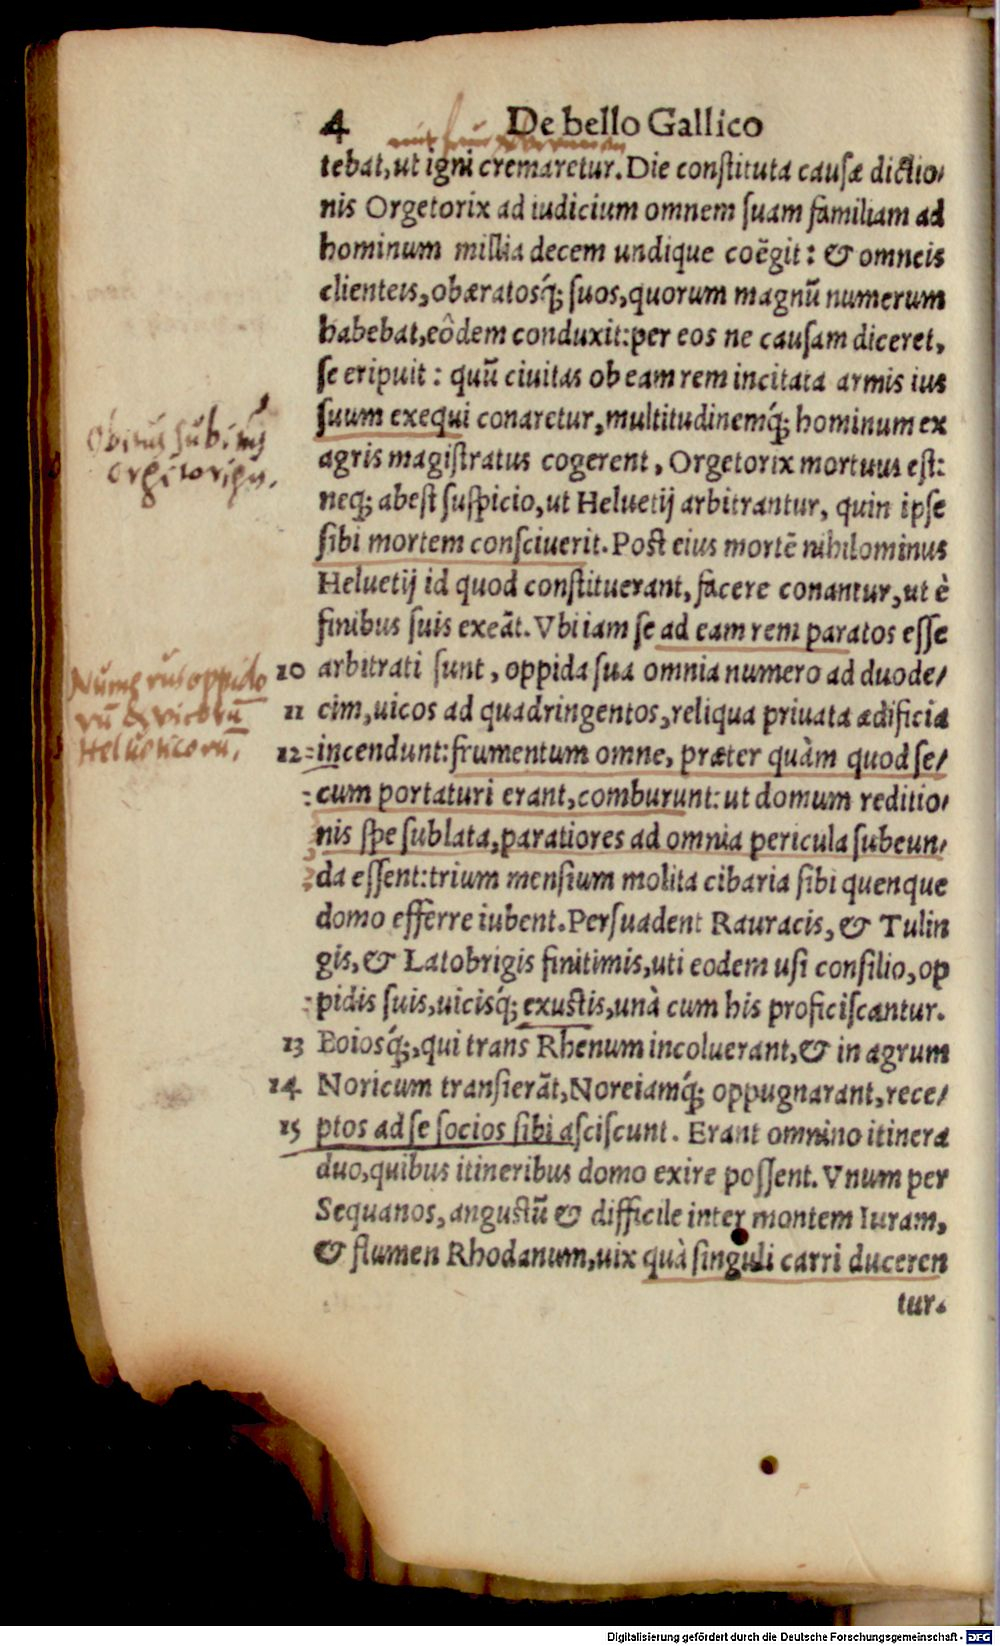 4 De bello Gallico
tebat, ut igni cremaretur. Die constituta causæ dictio/
nis Orgetorix ad iudicium omnem suam familiam ad
hominum millia decem undique coëgit: & omneis
clienteis, obæratosq́; suos, quorum magnũ numerum
habebat, eôdem conduxit: per eos ne causam diceret,
se eripuit: quũ ciuitas ob eam rem incitata armis ius
suum exequi conaretur, multitudinemq́; hominum ex
agris magistratus cogerent, Orgetorix mortuus est:
neq; abest suspicio, ut Heluetij arbitrantur, quin ipse
sibi mortem consciuerit. Post eius mortẽ nihilominus
Heluetij id quod constituerant, facere conantur, ut è
finibus suis exeãt. Vbi iam se ad eam rem paratos esse
10 arbitrati sunt, oppida sua omnia numero ad duode/
11 cim, uicos ad quadringentos, reliqua priuata ædificia
12 incendunt: frumentum omne, præter quàm quod se/
cum portaturi erant, comburunt: ut domum reditio/
nis spe sublata, paratiores ad omnia pericula subeun/
da essent: trium mensium molita cibaria sibi quenque
domo efferre iubent. Persuadent Rauracis, & Tulin
gis, & Latobrigis finitimis, uti eodem usi consilio, op
pidis suis, uicisq́; exustis, unà cum his proficiscantur.
13 Boiosq́;, qui trans Rhenum incoluerant, & in agrum
14 Noricum transierãt, Noreiamq́; oppugnarant, rece/
15 ptos ad se socios sibi asciscunt. Erant omnino itinera
duo, quibus itineribus domo exire possent. Vnum per
Sequanos, angustũ & difficile inter montem Iuram,
& flumen Rhodanum, uix quà singuli carriduceren
tur.
Obitus subitus
Numerus oppido
rũ & vicorũ
Helueticorũ.
Digitalisierung gefördert durch die Deutsche Forschungsgemeinschaft - DFG